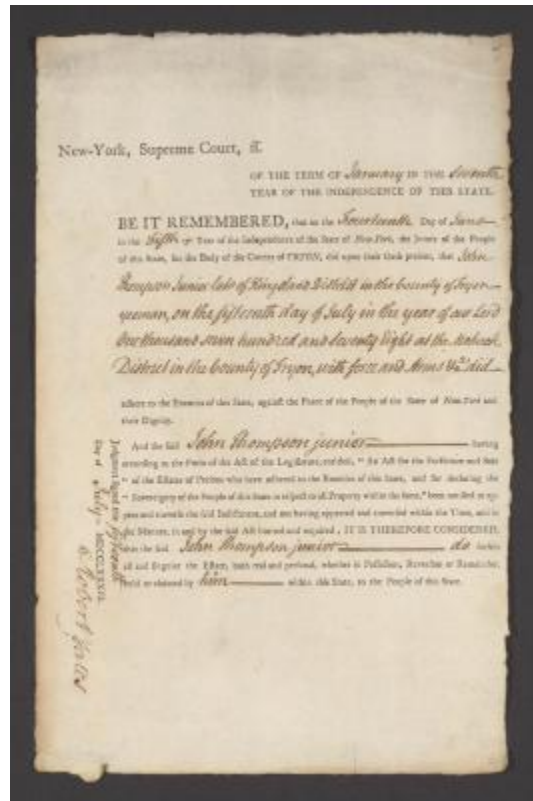 New-York, Supreme Court, &c.
OF THE TERM OF January IN THE Seventh
YEAR OF THE INDEPENDENCE OF THIS STATE.
BE IT REMEMBERED, that on the Fourteenth Day of June
in the Fifth Year of the Independence of the State of New-York, the Jurors of the People
of this State, for the Body of the County of TRYON, did upon their Oath present, that John
Thompson Junior late of Kingsland District in the County of Tryon
yeoman, on the fifteenth day of July in the year of our Lord
One thousand seven hundred and seventy Eight at the Mohawk
District in the County of Tryon, with force and Arms &c. did
adhere to the Enemies of this State, against the Peace of the People of the State of New-York and
their Dignity.
And the said John Thompson junior having
according to the Form of the Act of the Legislature, entitled, "An Act for the Forfeiture and Sale
"of the Estates of Persons who have adhered to the Enemies of this State, and for declaring the
"Sovereignty of the People of this State in respect to all Property within the same," been notified to ap-
pear and traverse the said Indictment, and not having appeared and traversed within the Time, and in
the Manner, in and by the said Act limited and required; IT IS THEREFORE CONSIDERED,
that the said John Thompson junior do forfeit
all and singular the Estate, both real and personal, whether in Possession, Reversion or Remainder,
held or claimed by him within this State, to the People of this State.
Judgment signed this fifteenth
Day of July MCCLXXXIII.
Robert Yates